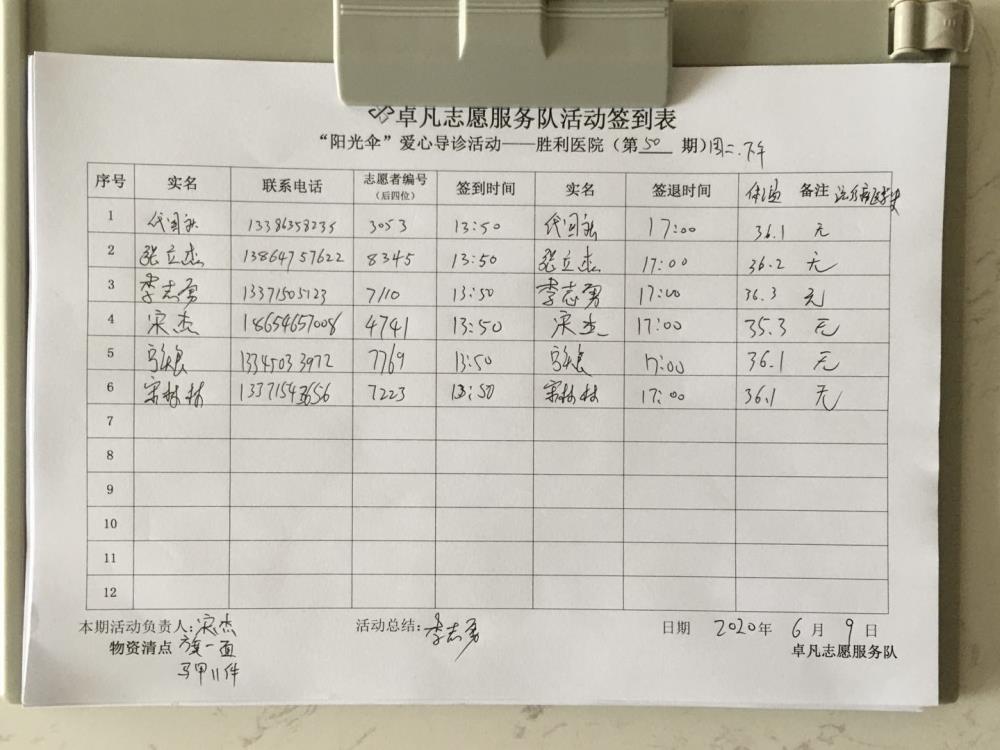 卓凡志愿服务队活动签到表
“阳光伞”爱心导诊活动——胜利医院（第 50 期）周二.下午
序号 实名 联系电话 志愿者编号（后四位） 签到时间 实名 签退时间 体温 备注
1 代国 13386358235 3053 13:50 代国 17:00 36.1 无
2 张立杰 13864757622 8345 13:50 张立杰 17:00 36.2 无
3 李志勇 13371505123 7110 13:50 李志勇 17:00 36.3 无
4 宋杰 18654657008 4741 13:50 宋杰 17:00 35.3 无
5 13345033972 7769 13:50 17:00 36.1 无
6 宋林林 13371543656 7223 13:50 宋林林 17:00 36.1 无
7
8
9
10
11
12
本期活动负责人:宋杰 活动总结:李志勇 日期 2020年 6月 9日
物资清点 旗一面 卓凡志愿服务队
马甲11件